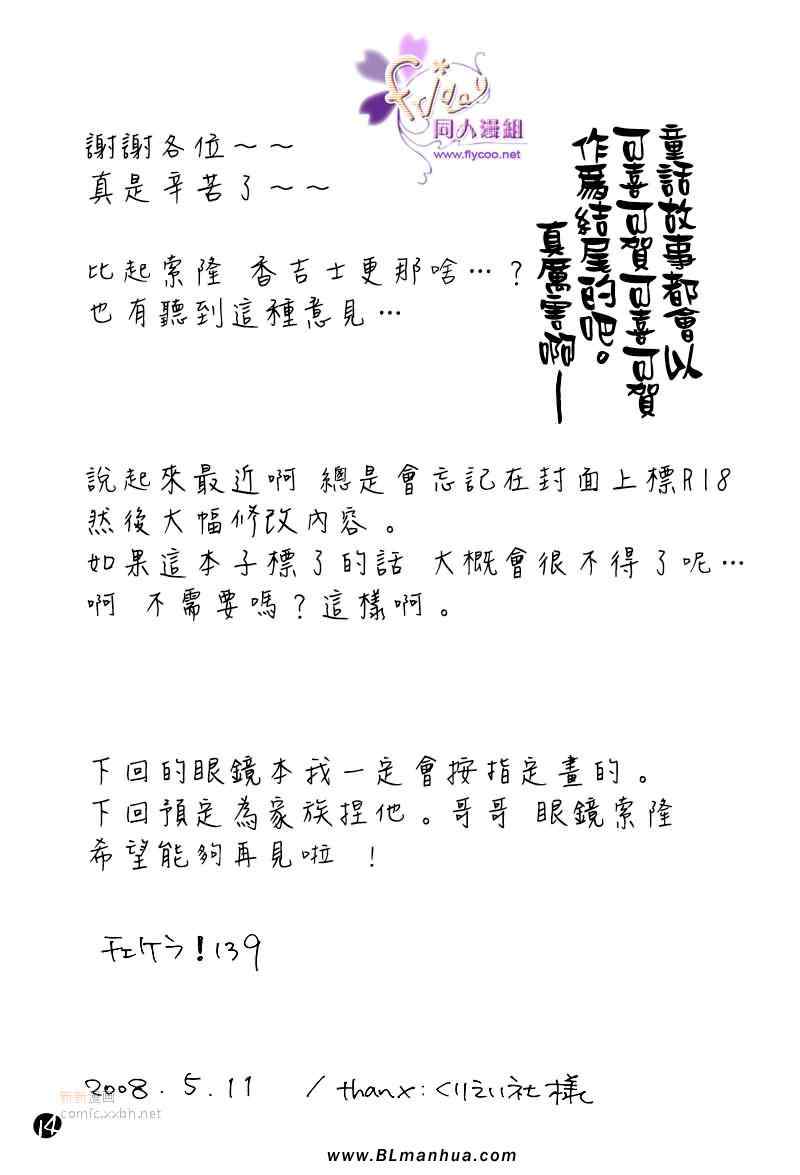 Friday
同人漫組
www.flycoo.net
童話故事都會以
可喜可賀可喜可賀
作為結尾的吧。
真厲害啊—
謝謝各位～～
真是辛苦了～～
比起索隆 香吉士更那啥…？
也有聽到這種意見…
說起來最近啊 總是會忘記在封面上標R18
然後大幅修改內容。
如果這本子標了的話 大概會很不得了呢…
啊 不需要嗎？這樣啊。
下回的眼鏡本我一定會按指定畫的。
下回預定為家族捏他。哥哥 眼鏡索隆
希望能夠再見啦 !
チェケラ!139
2008.5.11 / thanx:くりえい社様
新新漫画
comic.xxbh.net
14
www.BLmanhua.com